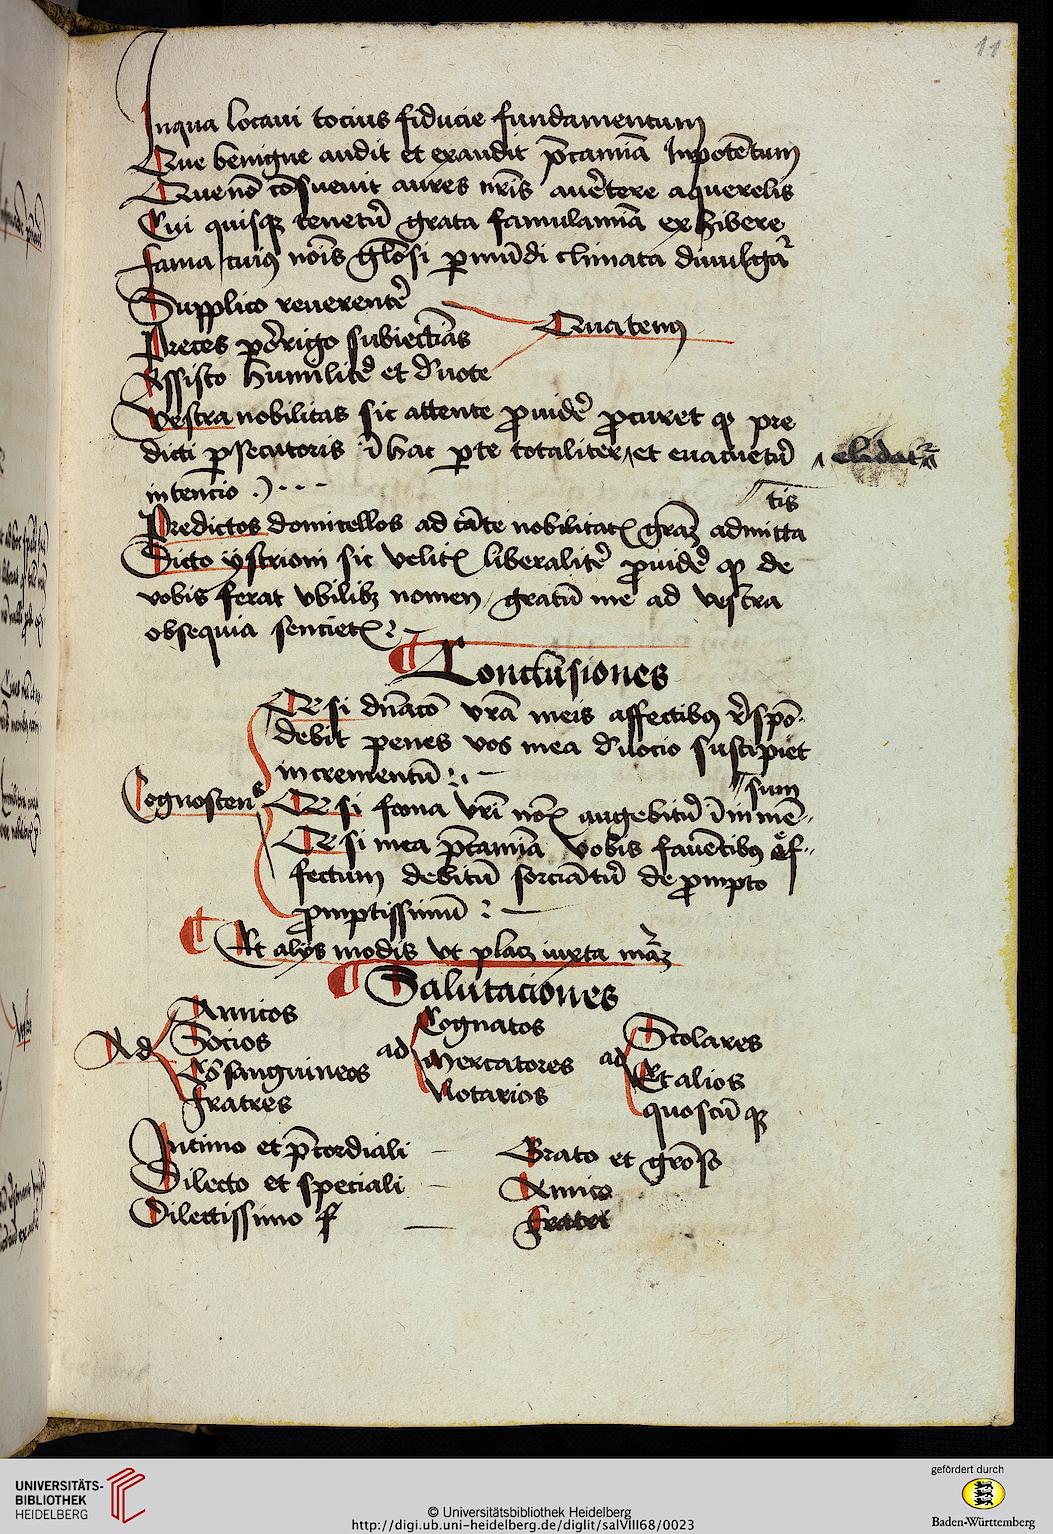 11
Inqua locaui tocius fiducie fundamentum
Que benigne audit et exaudit p̄camīa Inpotētum
Que nō cōsueuit aures nr̄is auertere aquerelis
Cui quisque tenetur grata famulamīa exhibere
fama cuius nōis glōsi per mūdi climata diuulgatur
Supplico reuerenter
Preces porrigo subiectīas
Quatenus
Assisto humiliter et deuote
Vestra nobilitas sic attente prouidere procuret quod pre
dicti persecutoris ī hac parte totaliter et euacuetur elidatur
intencio
tis
Predictos domicellos ad tāte nobilitatis grām admitta
Dicto ystrioni sic velitis liberaliter prouidere quod de
vobis ferat vbilibet nomen gratū me ad vestra
obsequia sencietis
Conclusiones
Quod si dn̄acō vr̄a meis affectibus respō
debit penes vos mea deuocio suscipiet
incrementū
sum
Cognoscens
Quod si fama vr̄i nōis augebitur ī inmē
Quod si mea p̄camīa vobis fauētibus ef
fectum debitū sorciātur de prompto
promptissimū
Et alijs modis vt placet iuxta mām
Salutaciones
Ad
Amicos
Socios
Cōsanguineos
Fratres
ad
Cognatos
Mercatores
Notarios
ad
Scolares
Et alios
quoscūque
Intimo et p̄cordiali
Grato et grōso
Dilecto et speciali
Amico
Dilectissimo
Fratri
UNIVERSITÄTS-
BIBLIOTHEK
HEIDELBERG
© Universitätsbibliothek Heidelberg
http://digi.ub.uni-heidelberg.de/diglit/salVIII68/0023
gefördert durch
Baden-Württemberg